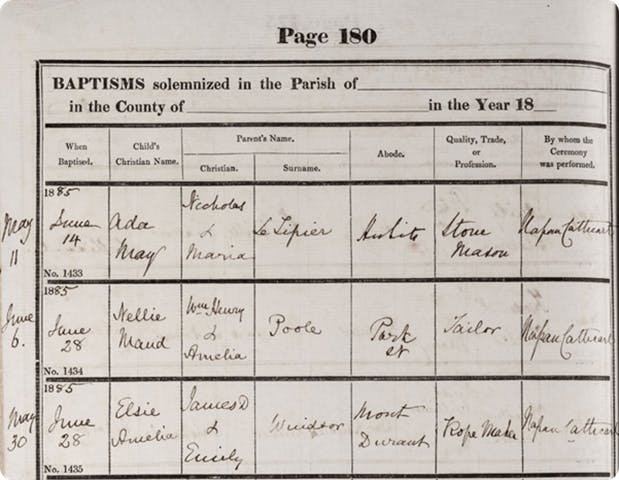 Page 180
BAPTISMS solemnized in the Parish of
in the County of in the Year 18
When
Baptised.
Child's
Christian Name.
Parent's Name.
Christian.
Surname.
Abode.
Quality, Trade,
or
Profession.
By whom the
Ceremony
was performed.
May
11
1885
June
14
No. 1433
Ada
May
Nicholas
&
Maria
Le Tipier
Stone
Mason
Cathcart
June
6.
1885
June
28
No. 1434
Nellie
Maud
Wm Henry
&
Amelia
Poole
Park
St
Tailor
Cathcart
May
30
1885
June
28
No. 1435
Elsie
Amelia
James D
&
Emily
Windsor
Mont
Durant
Rope Maker
Cathcart